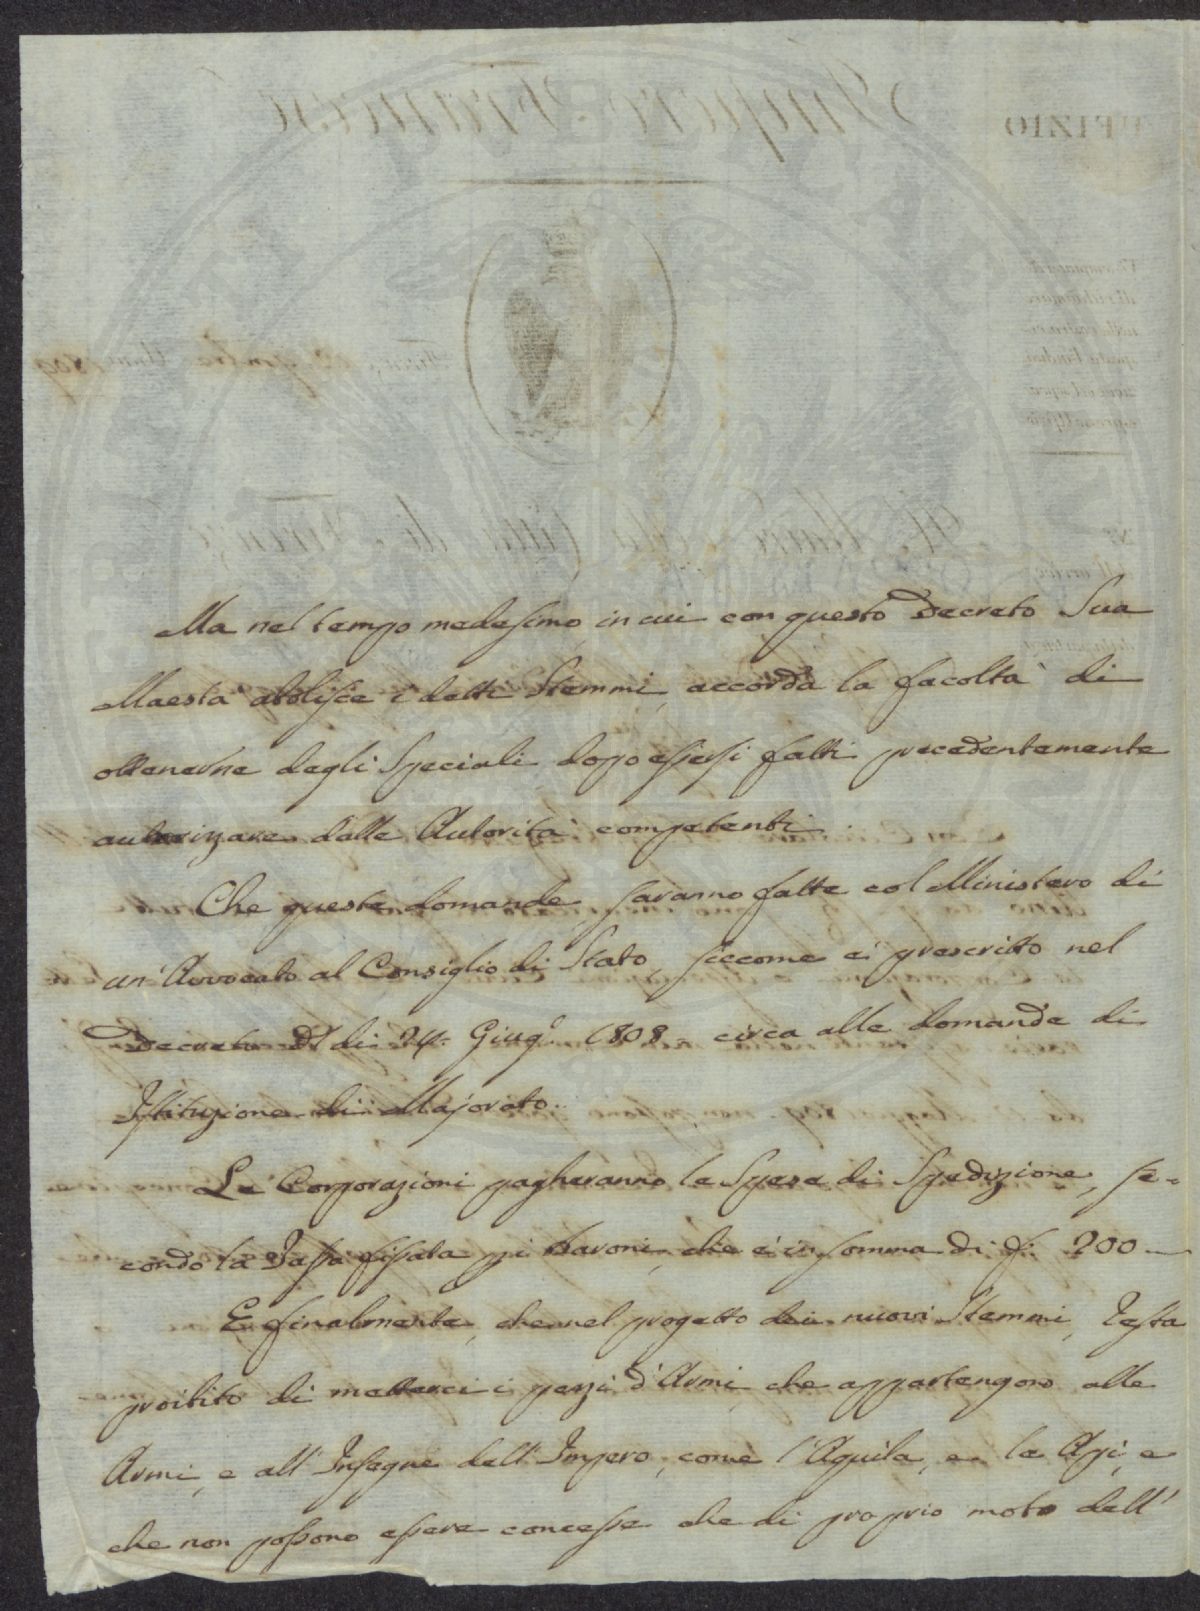 Ma nel tempo medesimo, in cui con questo Decreto Sua
Maestà abolisce i detti Stemmi, accorda la facoltà di
ottenerne degli Speciali dopo essersi fatti precedentemente
autorizzare dalle Autorità competenti.
Che queste domande saranno fatte col Ministero di
un'Avvocato al Consiglio di Stato siccome è prescritto nel
Decreto de' di 24. Giug.º 1808. circa alle domande di
Istituzione di Majorato.
Le Corporazioni pagheranno le Spese di Spedizione, se=
condo la Tassa fissata pei Baroni, che è in somma di f. 200 —
E finalmente, che nel progetto dei nuovi Stemmi, resta
proibito di metterci i pezzi d'Armi, che appartengono alle
Armi, e all'Insegne dell'Impero, come l'Aquila, e le Api, e
che non possono essere concesse che di proprio moto dell'